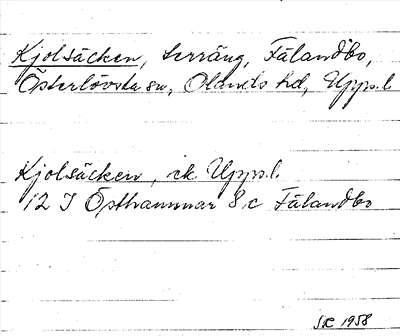 Kjolsäcken, terräng, Fälandbo,
Österlövsta sn, Olands hd, Upps.l
Kjolsäcken, ek Upps.l.
12 I Östhammar 8 c Fälandbo
SR 1958